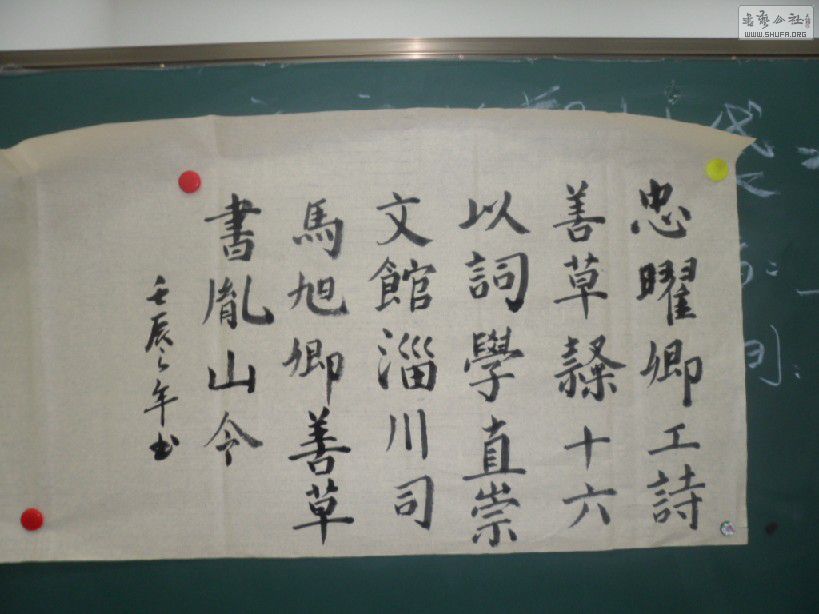 忠曜卿工詩
善草隸十六
以詞學直崇
文館淄川司
馬旭卿善草
書胤山令
壬辰之年書
WWW.SHUFA.ORG